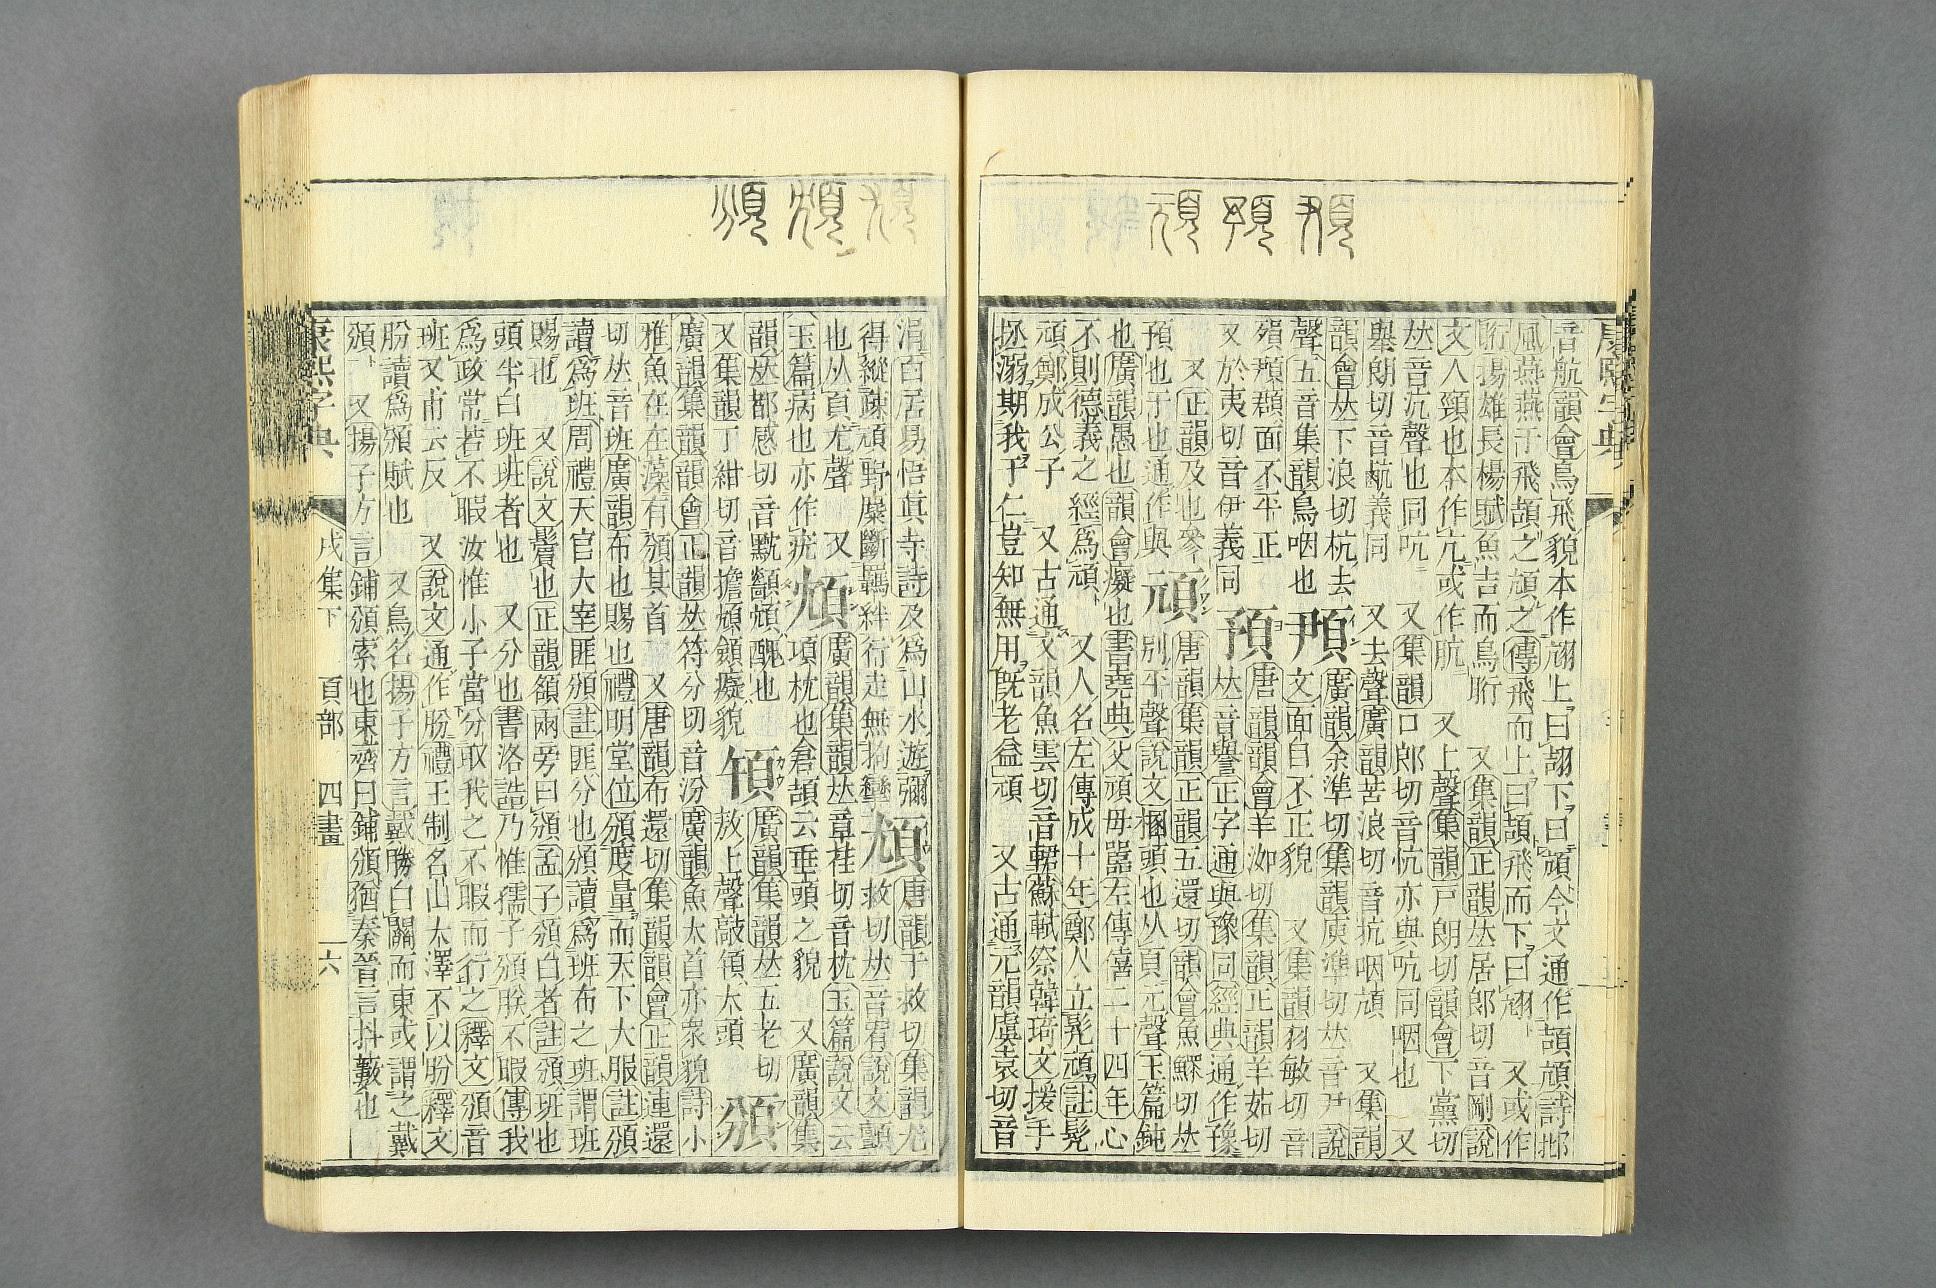 康熙字典
音航韻會鳥飛貌本作翓上曰翓下曰頏今文通作頡頏詩邶
風燕燕于飛頡之頏之傳飛而上曰頡飛而下曰頏 又或作
䀪揚雄長楊賦魚吉而鳥䀪 又集韻正韻𠀤居郎切音剛說
文人頸也本作亢或作肮 又上聲集韻戸朗切韻會下黨切
𠀤音沆聲也同吭 又集韻口郎切音忼亦與吭同咽也 又
舉朗切音䴚義同 又去聲廣韻苦浪切音抗咽頏 又集韻
韻會𠀤下浪切杭去
聲五音集韻鳥咽也
䪳廣韻余準切集韻庾準切𠀤音尹說
文面目不正貌 又集韻羽敏切音
殞䫟頵面不平正
又於夷切音伊義同
預唐韻韻會羊洳切集韻正韻羊茹切
𠀤音譽正字通與豫同經典通作豫
又正韻及也參
預也干也通作與
頑唐韻集韻正韻五還切韻會魚鰥切𠀤
別平聲說文㮯頭也从頁元聲玉篇鈍
也廣韻愚也韻會癡也書堯典父頑母嚚左傳僖二十四年心
不則德義之經爲頑 又人名左傳成十年鄭人立髡頑註髡
頑鄭成公子 又古通文韻魚雲切音䡣蘇軾祭韓琦文援手
拯溺期我于仁豈知無用旣老益頑 又古通元韻虞袁切音
涓百居易悟眞寺詩及爲山水遊彌
得縱疎頑野麋斷羈絆行走無拘攣
頄唐韻于救切集韻尤
救切𠀤音宥說文顫
也从頁尤聲 又
玉篇病也亦作疣
煩廣韻集韻𠀤章荏切音枕玉篇說文云
項枕也倉頡云垂頭之貌 又廣韻集
韻𠀤都感切音黕顲煩醜也
又集韻丁紺切音擔煩顉癡貌
䪴廣韻集韻𠀤五老切
敖上聲䪴顉大頭
頒
廣韻集韻韻會正韻𠀤符分切音汾廣韻魚大首亦衆貌詩小
雅魚在在藻有頒其首 又唐韻布還切集韻韻會正韻逋還
切𠀤音班廣韻布也賜也禮明堂位頒度量而天下大服註頒
讀爲班周禮天官大宰匪頒註匪分也頒讀爲班布之班謂班
賜也 又說文鬢也正韻額兩旁曰頒孟子頒白者註頒班也
頭半白班班者也 又分也書洛誥乃惟孺子頒朕不暇傳我
爲政常若不暇汝惟小子當分取我之不暇而行之釋文頒音
班又甫云反 又說文通作朌禮王制名山大澤不以朌釋文
朌讀爲頒賦也 又鳥名揚子方言戴勝自關而東或謂之戴
頒 又揚子方言鋪頒索也東齊曰鋪頒猶秦晉言抖藪也
康熙字典 戌集下 頁部 四畫 一六